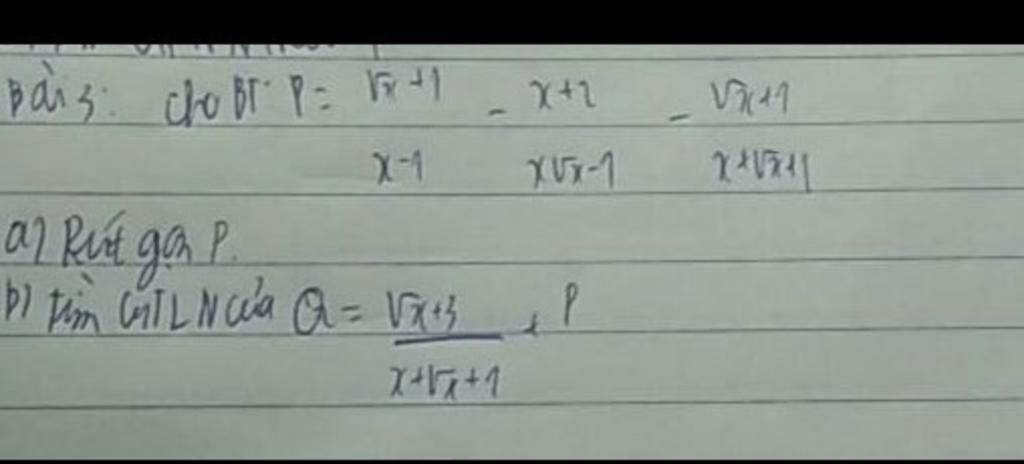 Bài 3: Cho BT P = √x+1 / x-1 - x+2 / x√x-1 - √x+1 / x+√x+1
a) Rút gọn P.
b) tìm GTLN của Q = √x+3 / x+√x+1 + P